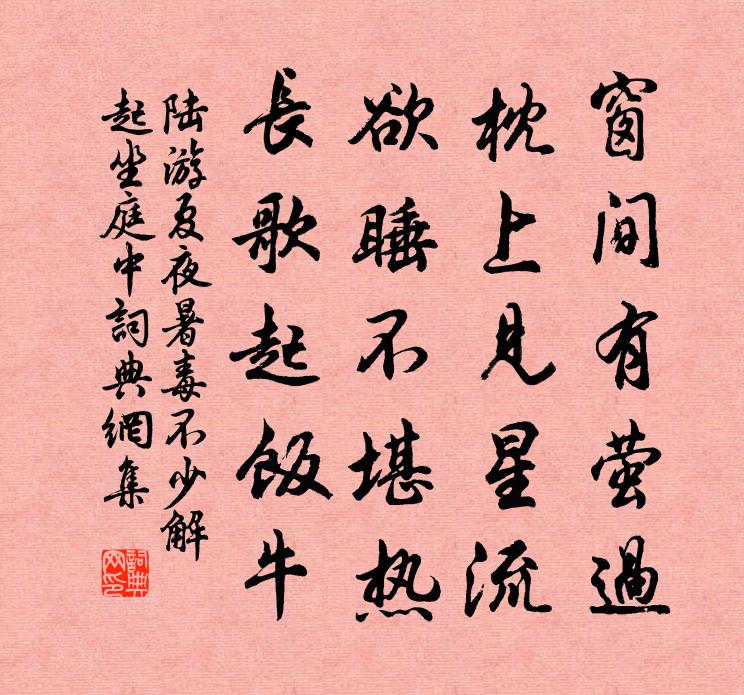 窗间有萤過
枕上見星流
欲睡不堪热
長歌起飯牛
陆游夏夜暑毒不少解
起坐庭中詞典網集
詞典网印